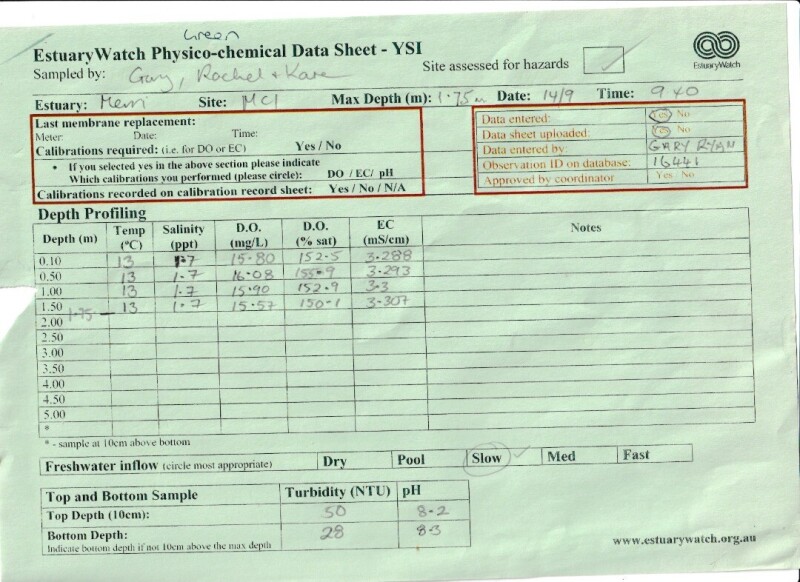 Green
EstuaryWatch Physico-chemical Data Sheet - YSI
Sampled by: Gary, Rachel + Kare
Site assessed for hazards ✓
EstuaryWatch
Estuary: Merri Site: MC1 Max Depth (m): 1.75m Date: 14/9 Time: 9 40
Last membrane replacement:
Meter: Date: Time:
Calibrations required: (i.e. for DO or EC) Yes / No
• If you selected yes in the above section please indicate
Which calibrations you performed (please circle): DO / EC/ pH
Calibrations recorded on calibration record sheet: Yes / No / N/A
Data entered: Yes/ No
Data sheet uploaded: Yes/ No
Data entered by: GARY RYAN
Observation ID on database: 16441
Approved by coordinator Yes / No
Depth Profiling
Depth (m) Temp (°C) Salinity (ppt) D.O. (mg/L) D.O. (% sat) EC (mS/cm) Notes
0.10 13 1.7 15.80 152.5 3.288
0.50 13 1.7 16.08 155.9 3.293
1.00 13 1.7 15.90 152.9 3.3
1.50 13 1.7 15.57 150.1 3.307
2.00 1.75 -
2.50
3.00
3.50
4.00
4.50
5.00
*
* - sample at 10cm above bottom
Freshwater inflow (circle most appropriate) Dry Pool Slow ✓ Med Fast
Top and Bottom Sample Turbidity (NTU) pH
Top Depth (10cm): 50 8.2
Bottom Depth: 28 8.3
Indicate bottom depth if not 10cm above the max depth
www.estuarywatch.org.au